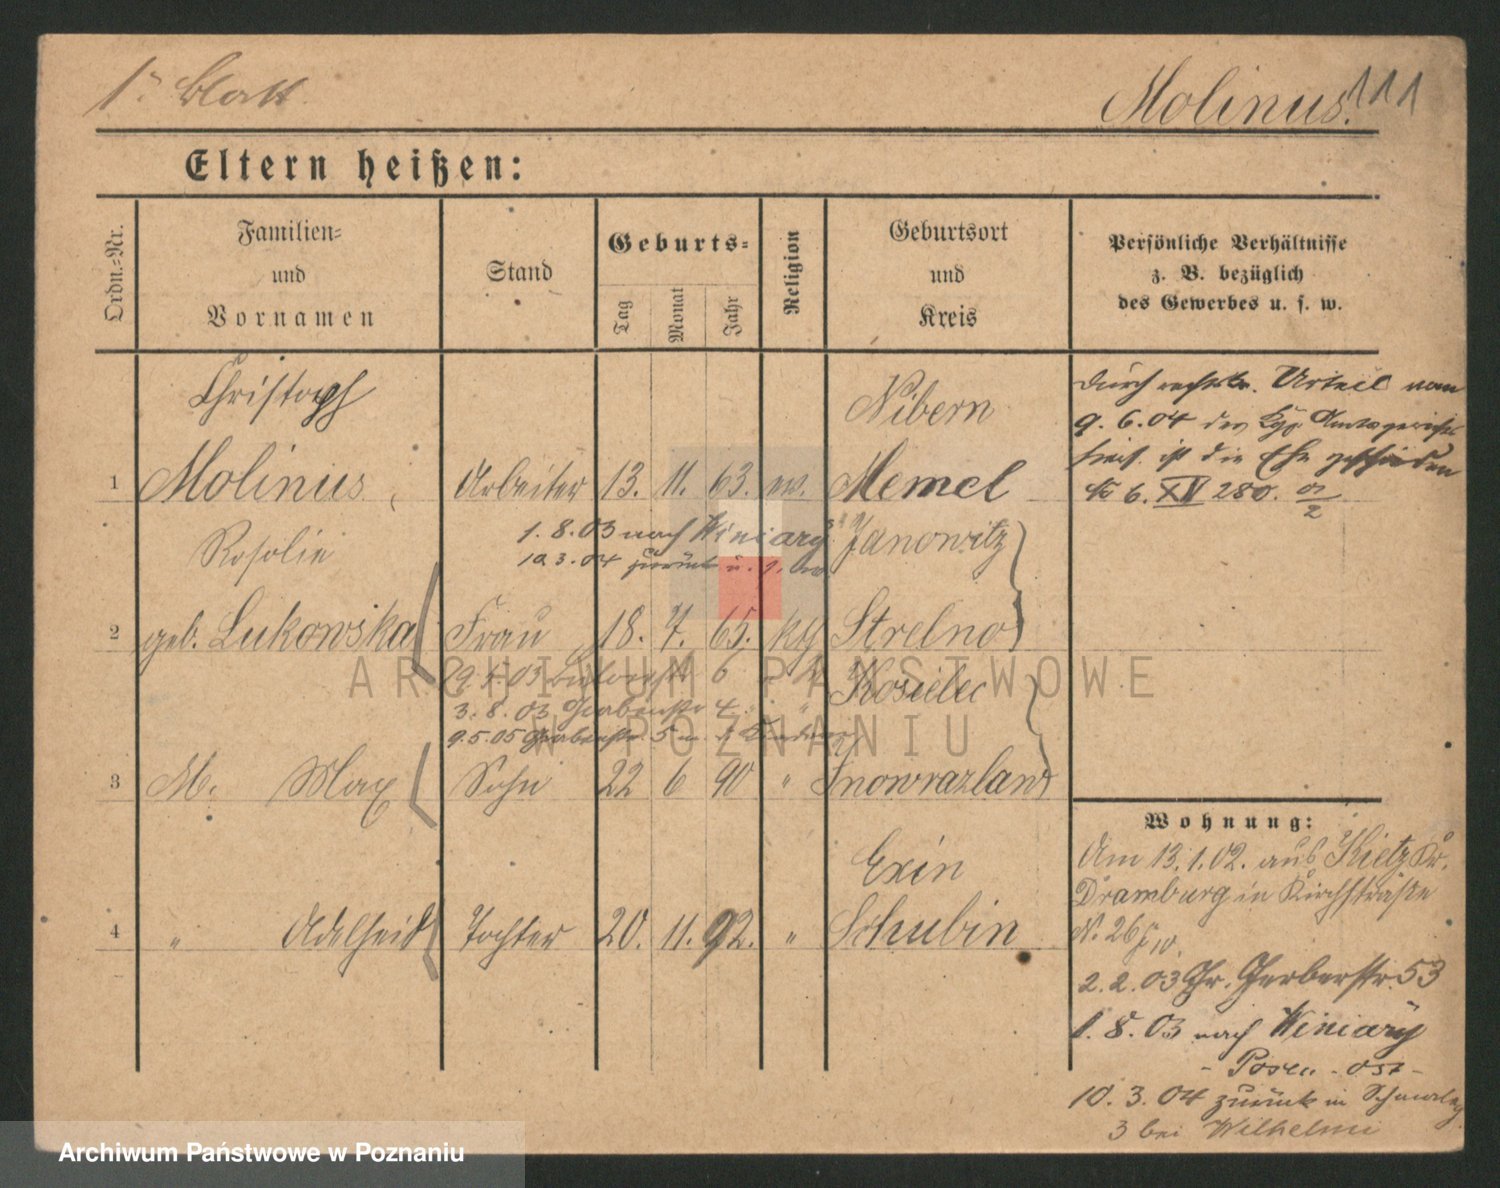 1. Blatt
Molinus. 111
Eltern heißen:
Ordn.-Nr.
Familien-
und
Vornamen
Stand
Geburts-
Tag
Monat
Jahr
Religion
Geburtsort
und
Kreis
Persönliche Verhältnisse
z. B. bezüglich
des Gewerbes u. s. w.
Christoph
Nibern
1 Molinus Arbeiter 13. 11. 63. ev. Memel
durch Urteil vom
9. 6. 04 des Kgl. Amtsgerichts
ist die Ehe geschieden
6. XV 280.
1. 8. 03 nach Winiary
10.3.04 zurück
Rosalie
Janowitz
2 geb. Lukowska Frau 18. 7. 65. kth Strelno
3. 8. 03 Grabenstr 4
9.5.05 Grabenstr. 5
Koscielec
3 M. Max Sohn 22 6 90 " Inowrazlaw
Exin
4 " Adelheid Tochter 20. 11. 92. " Schubin
Wohnung:
Am 13.1.02. aus Kietz Kr.
Dramburg in Kirchstraße
N. 26
2. 2. 03 Gr. Gerberstr. 53
1. 8. 03 nach Winiary
- Posen - Ost -
10. 3. 04 zurück in
3 bei Wilhelmi
ARCHIWUM PAŃSTWOWE
W POZNANIU
Archiwum Państwowe w Poznaniu